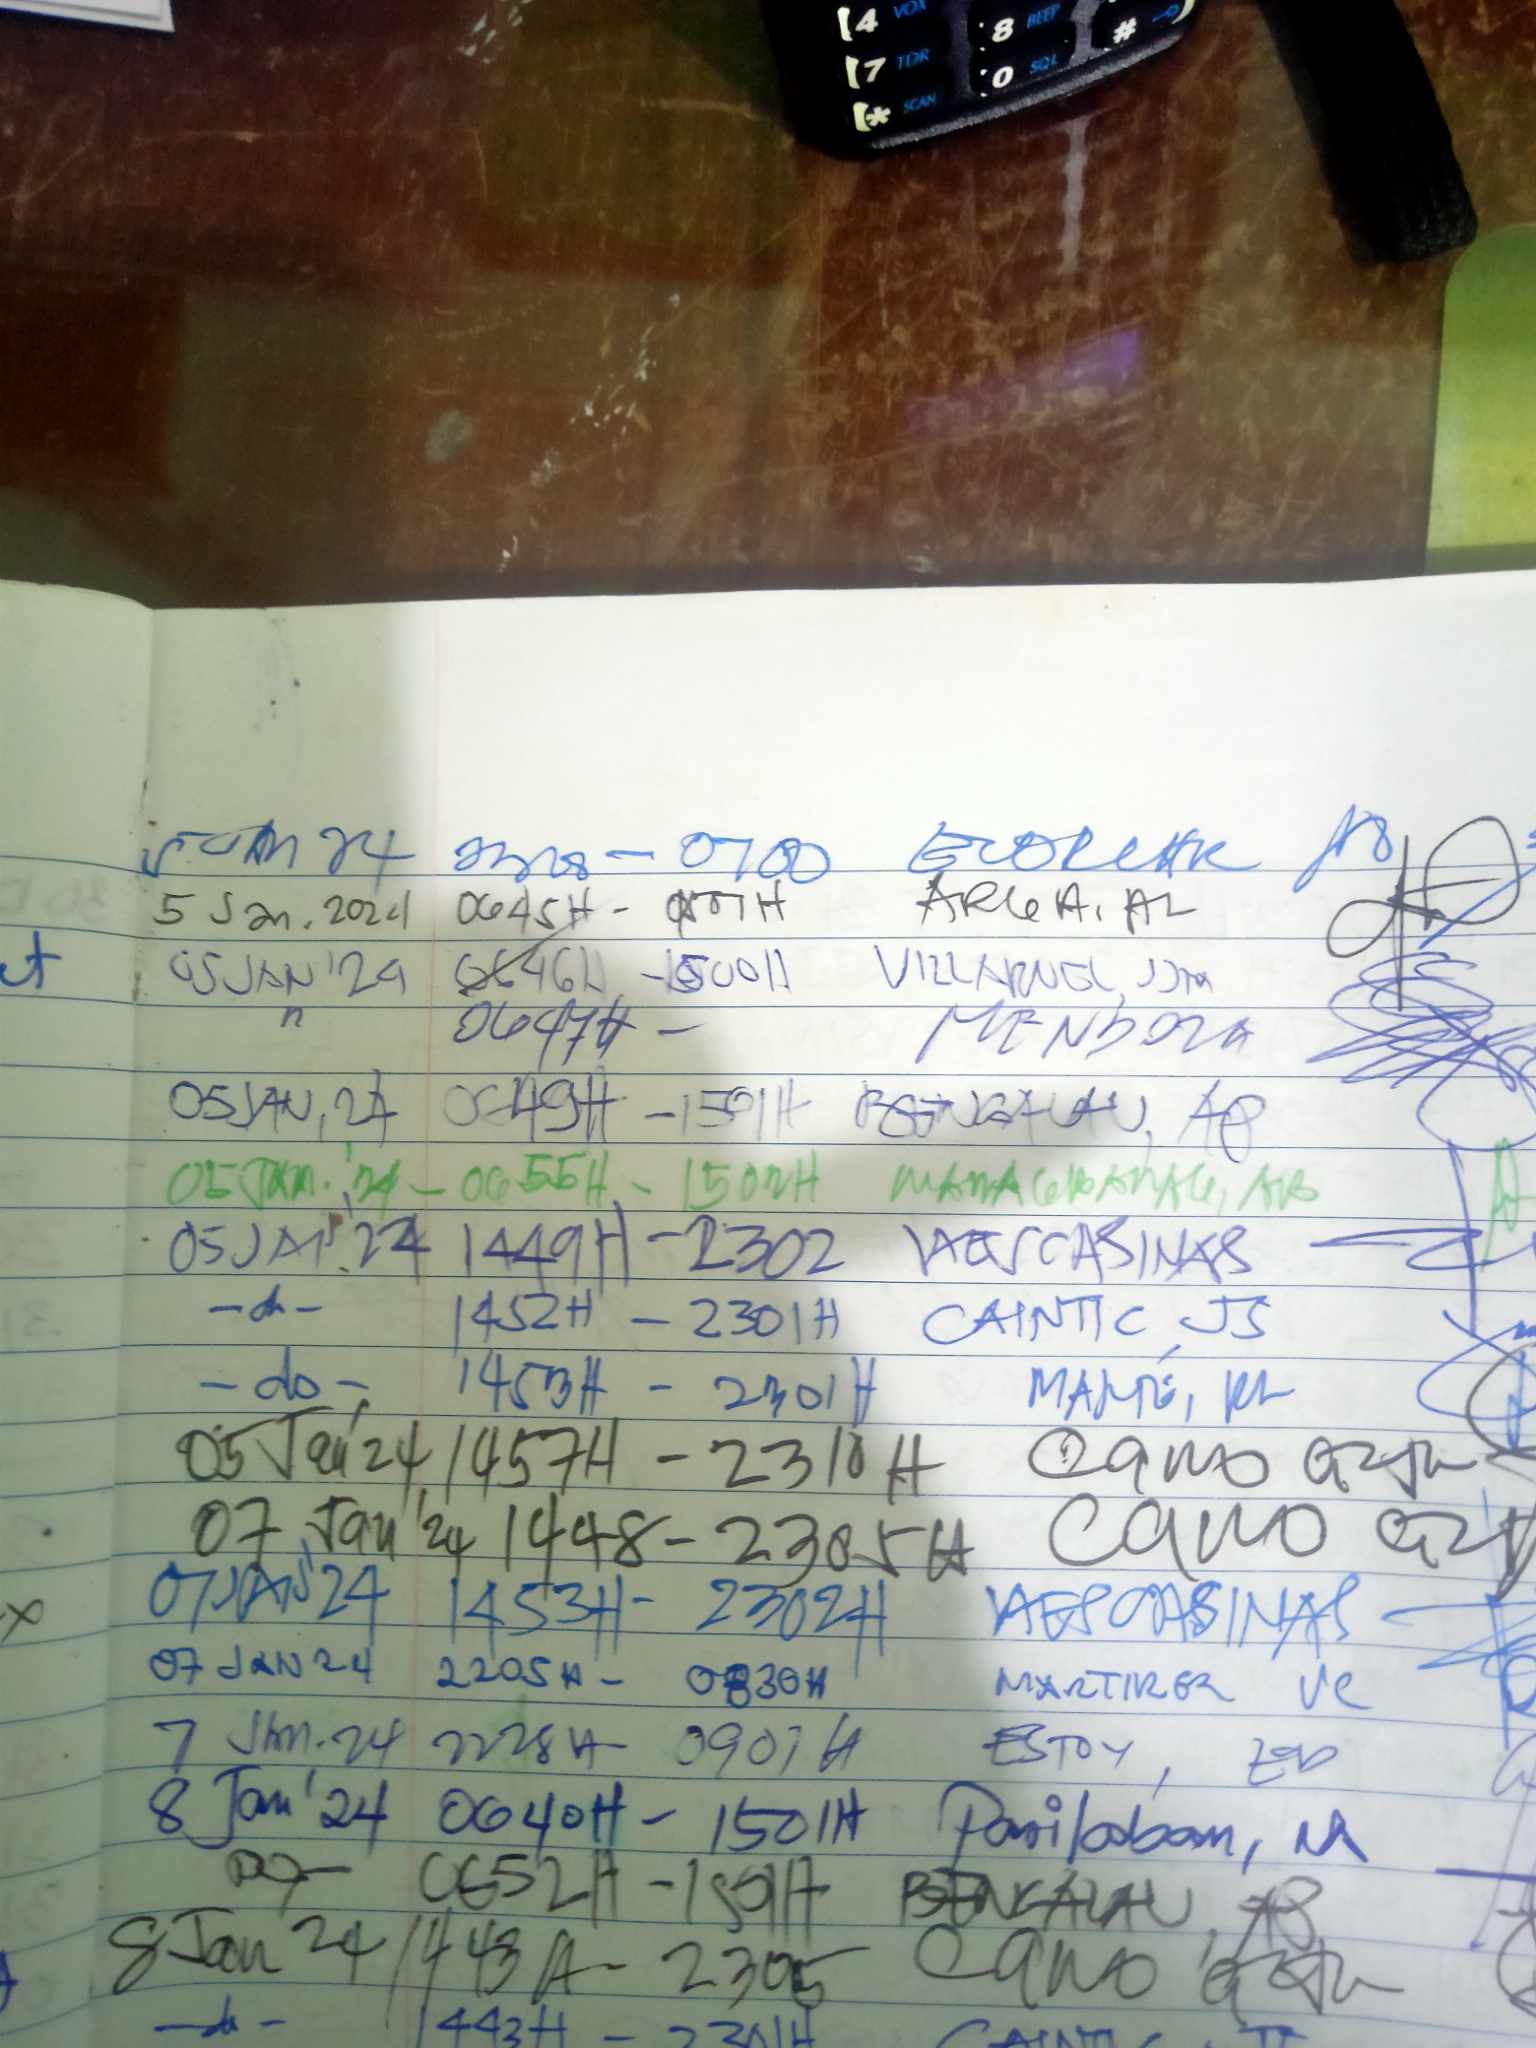 4 VOX 8 BEEP #
7 TDR 0 SQL
* SCAN
5 Jan 24 2228 - 0700
5 Jan. 2024 0645H - 1507H ARGEA, AL
05 JAN '24 0646H - 1500H VILLARUEL, JJM
" 0647H - MENDOZA
05 JAN, 24 0649H - 1501H BENGALAU, AB
05 Jan. '24 - 0655H - 1502H
05 JAN '24 1449H - 2302 VAESCASINAS
- do - 1452H - 2301H CAINTIC, JS
- do - 1453H - 2301H RL
05 Jan '24 1457H - 2310H Cano
07 Jan '24 1448 - 2305H Cano
07 JAN '24 1453H - 2302H VAESCASINAS
07 JAN 24 2205H - 0830H MARTIRER VC
7 Jan. 24 2228H - 0907H ESTOY,
8 Jan '24 0640H - 1501H Parilabam, M
- 0652H - 1501H BENGALAU, AB
8 Jan '24 1443H - 2305 Cano
- do - 1443H - 2301H CAINTIC, JS